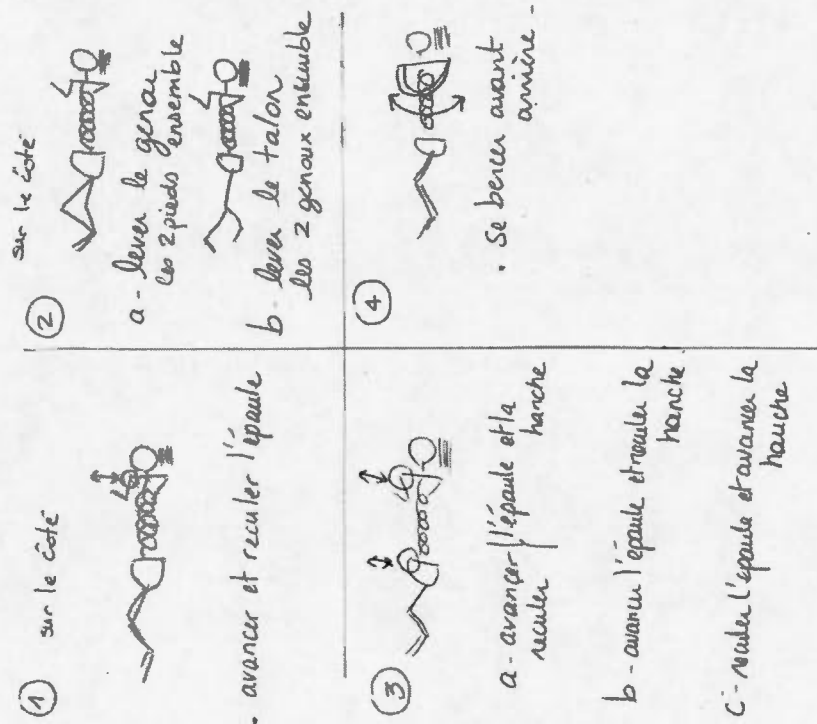 ① sur le côté
• avancer et reculer l'épaule
② sur le côté
a - lever le genou
les 2 pieds ensemble
b - lever le talon
les 2 genoux ensemble
③
a - avancer l'épaule et la
reculer hanche
b - avancer l'épaule et reculer la
hanche
c - reculer l'épaule et avancer la
hanche
④
• Se bercer avant
arrière -